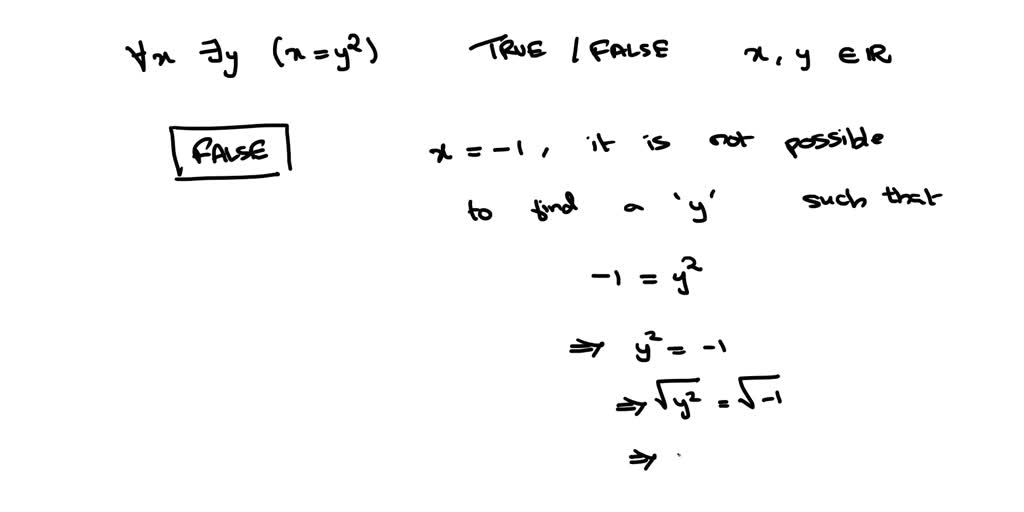 ∀x ∃y (x = y²) TRUE / FALSE x, y ∈ ℝ
FALSE x = -1, it is not possible
to find a 'y' such that
-1 = y²
⇒ y² = -1
⇒ √y² = √-1
⇒